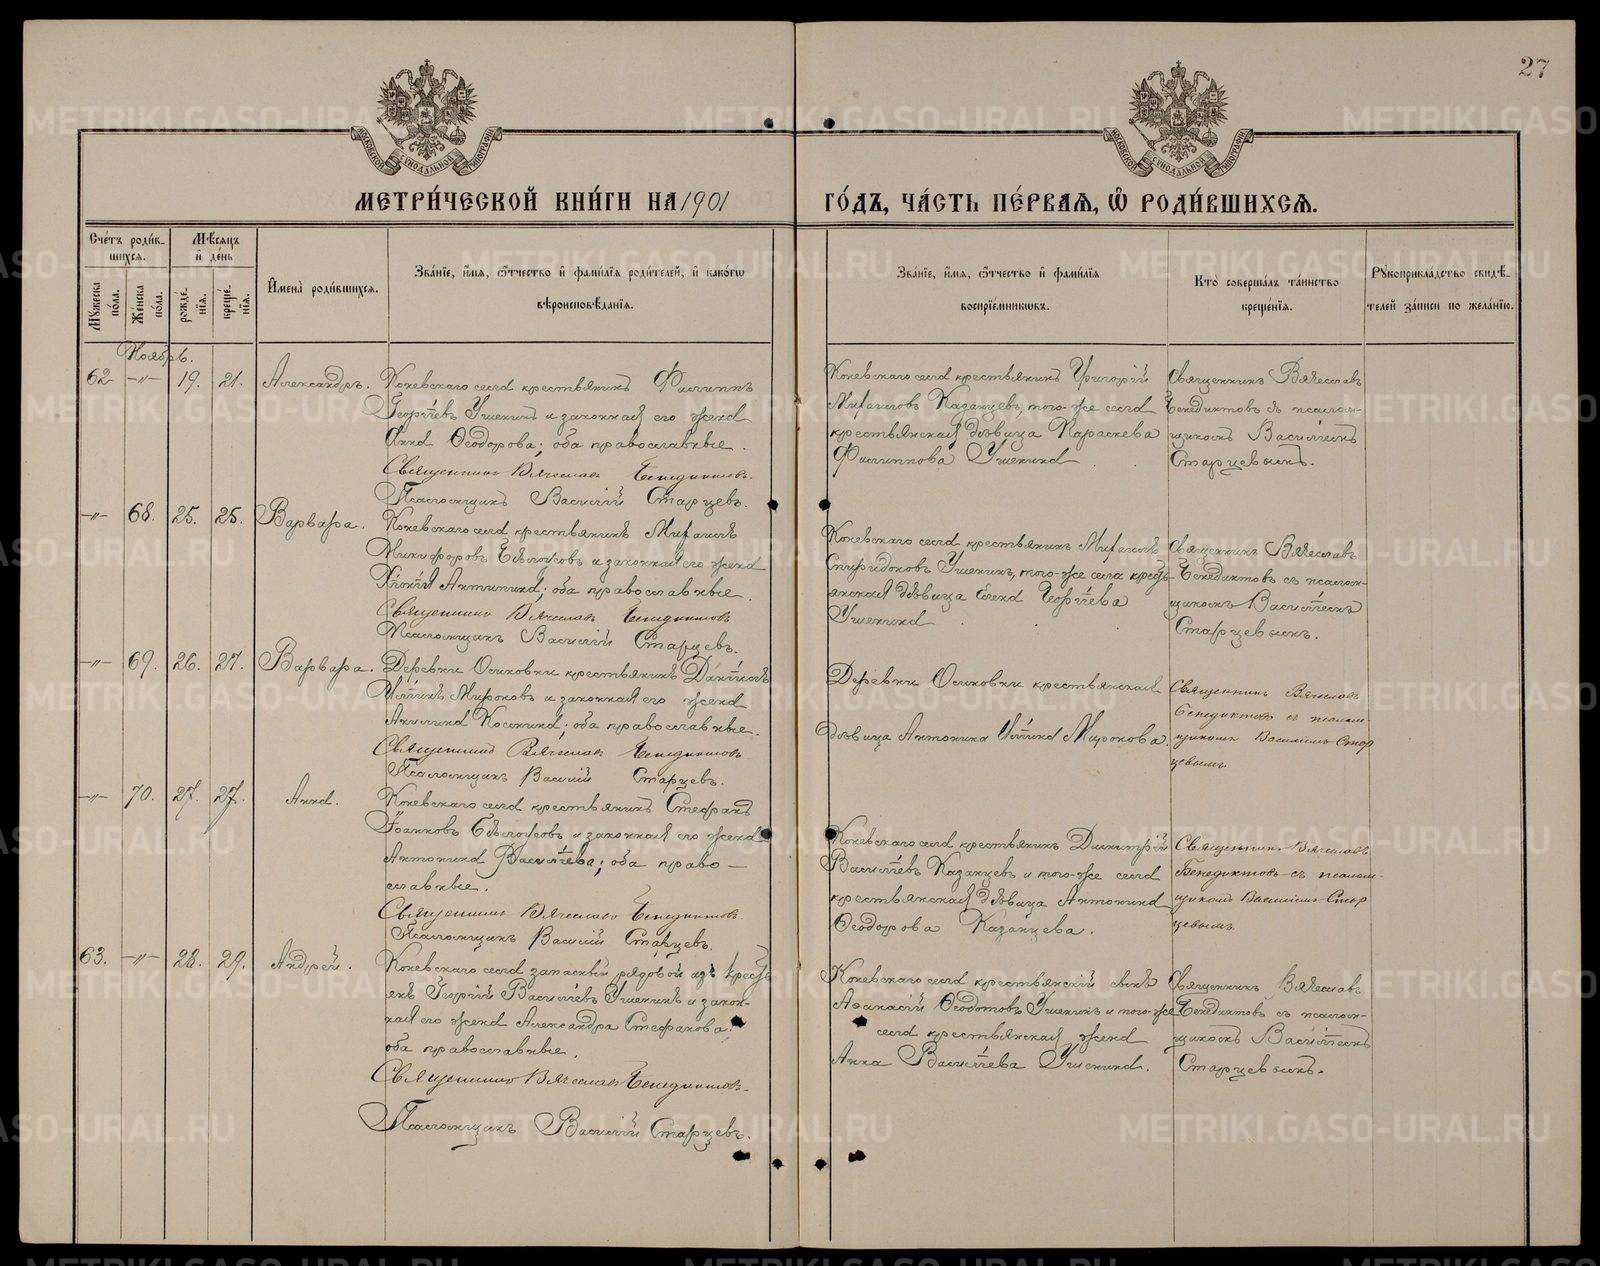 27
МОСКОВСКОЙ СѴНОДАЛЬНОЙ ТИПОГРАФІИ
МОСКОВСКОЙ СѴНОДАЛЬНОЙ ТИПОГРАФІИ
МЕТРИ́ЧЕСКОЙ КНИ́ГИ НА 1901
ГО́ДЪ, ЧА́СТЬ ПЕ́РВАЯ, Ѡ РОДИ́ВШИХСЯ.
Сче́тъ роди́в-
шихся.
Мѣ́сяцъ
и де́нь
Му́жеска по́ла.
Же́нска по́ла.
рожде́нія.
креще́нія.
И́мена роди́вшихся.
Зва́ніе, и́мя, о́тчество и фами́лія роди́телей, и како́гѡ
вѣроисповѣ́данія.
Зва́ніе, и́мя, о́тчество и фами́лія
воспріе́мниковъ.
Кто̀ соверша́лъ та́инство
креще́нія.
Рукоприкла́дство свидѣ́-
телей за́писи по жела́нію.
Ноябрь.
62 -„- 19. 21. Александръ.
Коневскаго села крестьянинъ Филиппъ
Георгіевъ Ушенинъ и законная его жена
Анна Ѳеодорова; оба православные.
Священникъ Вячеславъ Бенедиктовъ.
Псаломщикъ Василій Старцевъ.
Коневскаго села крестьянинъ Григорій
Михаиловъ Казанцевъ, того-же села
крестьянская дѣвица Параскева
Филиппова Ушенина.
Священникъ Вячеславъ
Бенедиктовъ съ псалом-
щикомъ Василіемъ
Старцевымъ.
-„- 68. 25. 25. Варвара.
Коневскаго села крестьянинъ Михаилъ
Никифоровъ Бѣлоусовъ и законная его жена
Хіонія Антипина; оба православные.
Священникъ Вячеславъ Бенедиктовъ
Псаломщикъ Василій Старцевъ.
Коневскаго села крестьянинъ Михаилъ
Спиридоновъ Ушенинъ, того-же села кресть-
янская дѣвица Елена Георгіева
Ушенина
Священникъ Вячеславъ
Бенедиктовъ съ псалом-
щикомъ Василіемъ
Старцевымъ.
-„- 69. 26. 27. Варвара.
Деревни Осиновки крестьянинъ Даніилъ
Иліинъ Мироновъ и законная его жена
Акилина Косьмина; оба православные.
Священникъ Вячеславъ Бенедиктовъ
Псаломщикъ Василій Старцевъ.
Деревни Осиновки крестьянская
дѣвица Антонина Иліина Миронова.
Священникъ Вячеславъ
Бенедиктовъ съ псалом-
щикомъ Василіемъ Стар
цевымъ.
-„- 70. 27. 27. Анна.
Коневскаго села крестьянинъ Стефанъ
Іоанновъ Бѣлоусовъ и законная его жена
Антонина Василіева; оба право-
славные.
Священникъ Вячеславъ Бенедиктовъ.
Псаломщикъ Василій Старцевъ.
Коневскаго села крестьянинъ Димитрій
Василіевъ Казанцевъ и того-же села
крестьянская дѣвица Антонина
Ѳеодорова Казанцева.
Священникъ Вячеславъ
Бенедиктовъ съ псалом-
щикомъ Василіемъ Стар
цевымъ.
63. -„- 28. 29. Андрей.
Коневскаго села запасный рядовой изъ кресть-
янъ Георгій Василіевъ Ушенинъ и закон-
ная его жена Александра Стефанова;
оба православные.
Священникъ Вячеславъ Бенедиктовъ.
Псаломщикъ Василій Старцевъ.
Коневскаго села крестьянскій сынъ
Аѳанасій Ѳедотовъ Ушенинъ и того-же
села крестьянская жена
Анна Василіева Ушенина.
Священникъ Вячеславъ
Бенедиктовъ съ псалом-
щикомъ Василіемъ
Старцевымъ.
METRIKI.GASO-URAL.RU